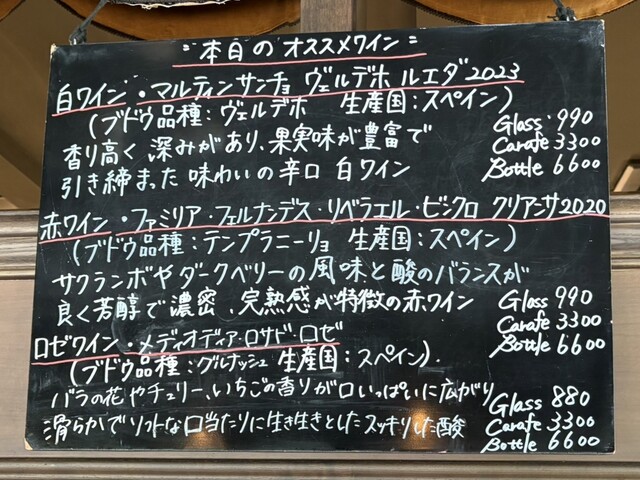 本日のオススメワイン
白ワイン・マルティンサンチョ ヴェルデホ ルエダ2023
(ブドウ品種：ヴェルデホ 生産国：スペイン)
香り高く 深みがあり、果実味が豊富で
引き締まった 味わいの辛口 白ワイン
Glass 990
Carafe 3300
Bottle 6600
赤ワイン・ファミリア・フェルナンデス・リベラエル・ビンクロ クリアンサ2020
(ブドウ品種：テンプラニーリョ 生産国：スペイン)
サクランボやダークベリーの風味と酸のバランスが
良く芳醇で濃密、完熟感が特徴の赤ワイン
Glass 990
Carafe 3300
Bottle 6600
ロゼワイン・メディオディア・ロサド・ロゼ
(ブドウ品種：グルナッシュ 生産国：スペイン).
バラの花やチェリー、いちごの香りが口いっぱいに広がり
滑らかでソフトな口当たりに生き生きとしたスッキリした酸
Glass 880
Carafe 3300
Bottle 6600